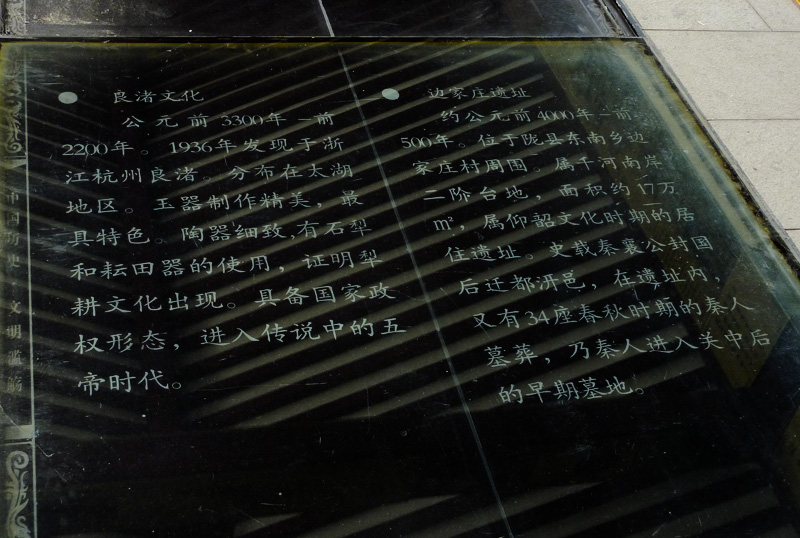 良渚文化
公元前3300年—前
2200年。1936年发现于浙
江杭州良渚。分布在太湖
地区。玉器制作精美，最
具特色。陶器细致,有石犁
和耘田器的使用，证明犁
耕文化出现。具备国家政
权形态，进入传说中的五
帝时代。
边家庄遗址
约公元前4000年—前
500年。位于陇县东南乡边
家庄村周围。属千河南岸
二阶台地，面积约17万
m²，属仰韶文化时期的居
住遗址。史载秦襄公封国
后迁都汧邑，在遗址内，
又有34座春秋时期的秦人
墓葬，乃秦人进入关中后
的早期墓地。
中国历史 文明滥觞